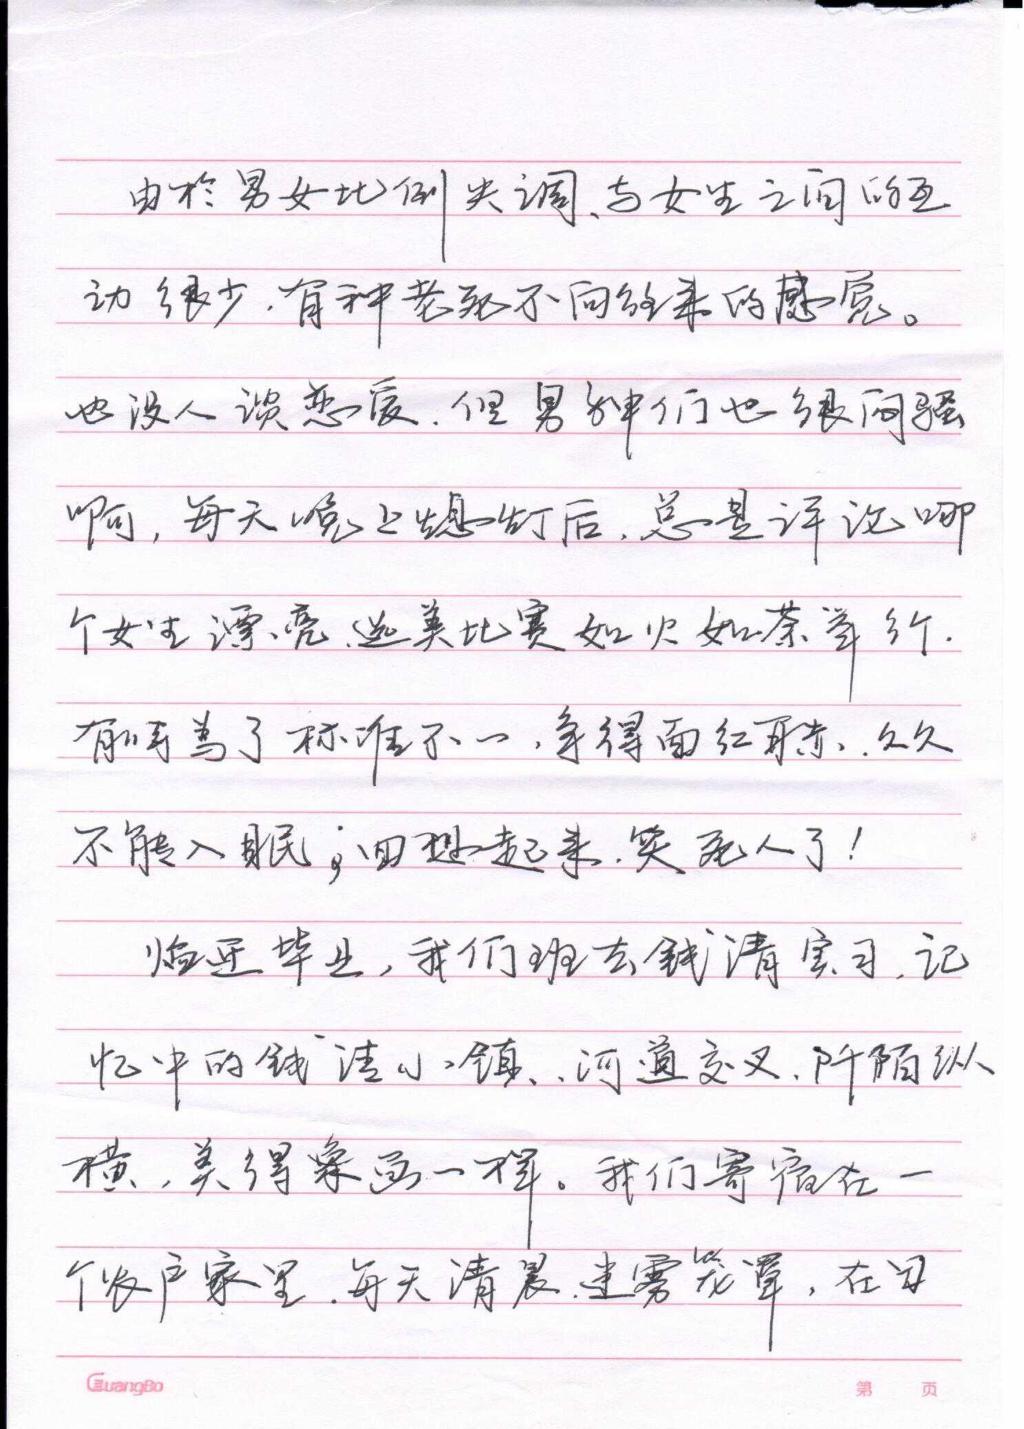 由於男女比例失调、与女生之间的互
动很少.有种老死不向往来的感觉。
也没人谈恋爱.但男神们也很闷骚
啊,每天晚上熄灯后.总是评论哪
个女生漂亮.选美比赛如火如荼举行.
有时為了标准不一,争得面红耳赤.久久
不能入眠;回想起来.笑死人了!
临近毕业,我们班去钱清实习.记
忆中的钱清小镇、河道交叉.阡陌纵
横,美得象画一样。我们寄宿在一
个农户家里.每天清晨.迷雾笼罩,在日
GuangBo
第 页